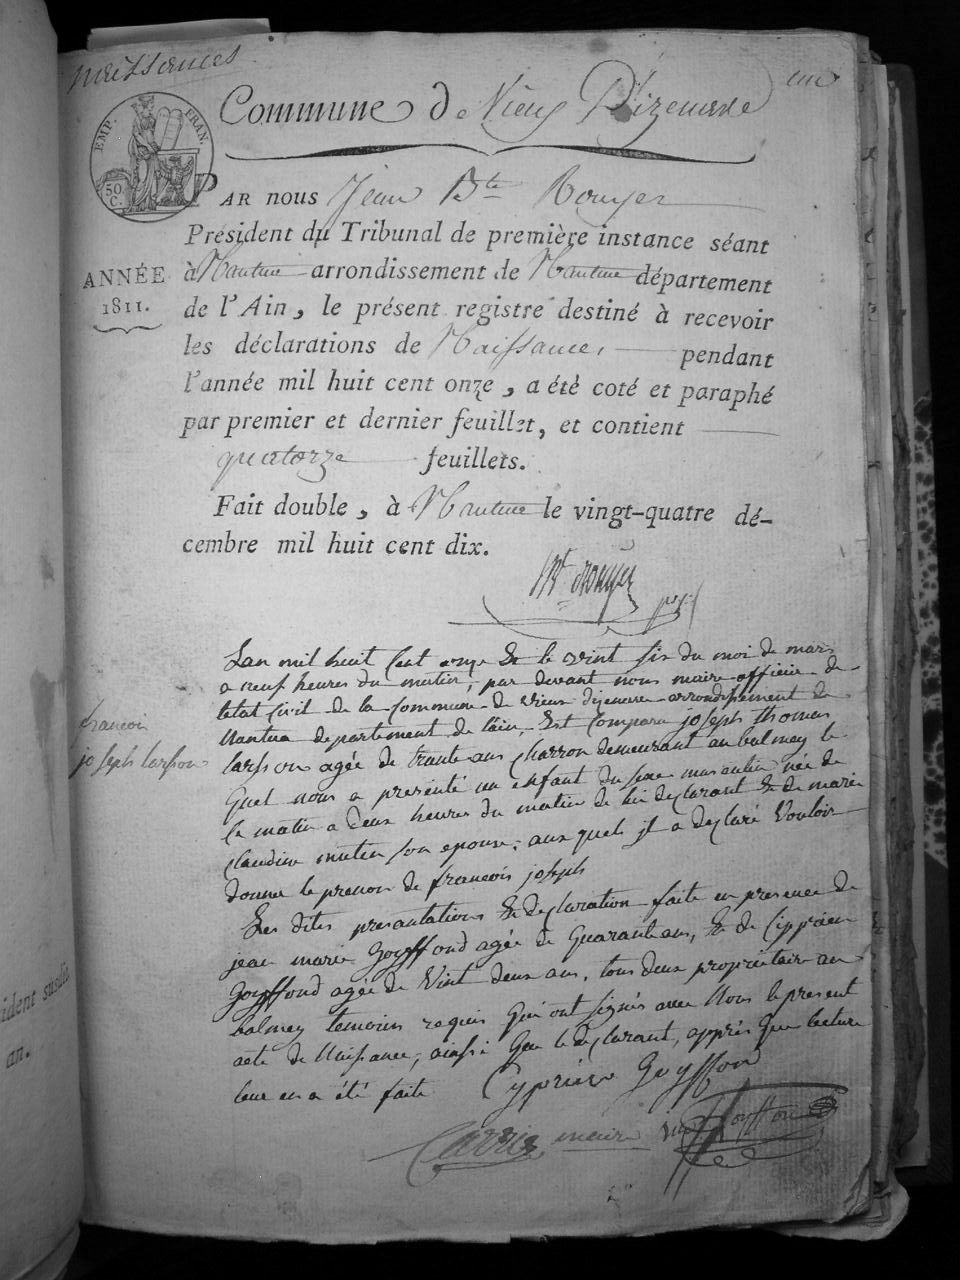 naissances
un
Commune de Vieu D'izenave
EMP. FRAN.
50. C.
PAR nous Jean Bte Rouyer
Président du Tribunal de première instance séant
ANNÉE
1811.
à Nantua arrondissement de Nantua département
de l'Ain, le présent registre destiné à recevoir
les déclarations de Naissances pendant
l'année mil huit cent onze, a été coté et paraphé
par premier et dernier feuillet, et contient
quatorze feuillets.
Fait double, à Nantua le vingt-quatre dé-
cembre mil huit cent dix.
Bt Rouyer
francoi
joseph larson
Lan mil huit Cent onze & le vint six du moi de mars
a neuf heures du matin, par devant nous maire officier de
letat Civil de la commune de vieux dizenave arrondissement de
Nantua departement de lain, Est Comparu joseph thomas
agée de trante ans charron demeurant au balmey le
Quel nous a presenté un enfant du sexe masculin née de
le matin a deux heures du matin de lui declarant & de marie
claudine mutin son epouse, aux quels il a declaré Vouloir
donner le prenon de francois joseph
Les dites presantations & declaration faite en presence de
jean marie Goyffond agée de Quarant ans, & de Cipprien
Goyffond agée de vint deux ans, tous deux propriétaire au
balmey temoins requis Qui ont signés avec Nous le present
acte de Naissance, ainsi Que le declarant, apprés Que lecture
leur en a été faite Cyprien Goyffon
Carrier maire Goyffon
ident susdit
an.